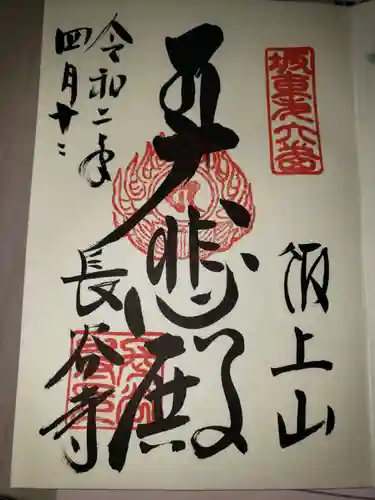 坂東第六番
飯上山
大悲殿
令和二年
四月十二
長谷寺